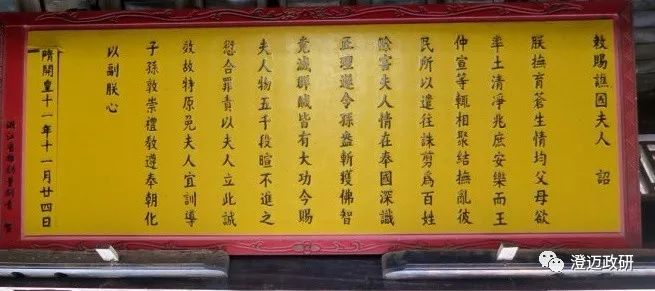 敕賜譙國夫人 詔
朕撫育蒼生情均父母欲
率土清淨兆庶安樂而王
仲宣等輒相聚結擾亂彼
民所以遣往誅剪為百姓
除害夫人情在奉國深識
正理遂令孫盎斬獲佛智
竟滅群賊皆有大功今賜
夫人物五千段暄不進之
愆合罪責以夫人立此誠
效故特原免夫人宜訓導
子孫敦崇禮教遵奉朝化
以副朕心
隋開皇十一年十一月廿四日
澄迈政研